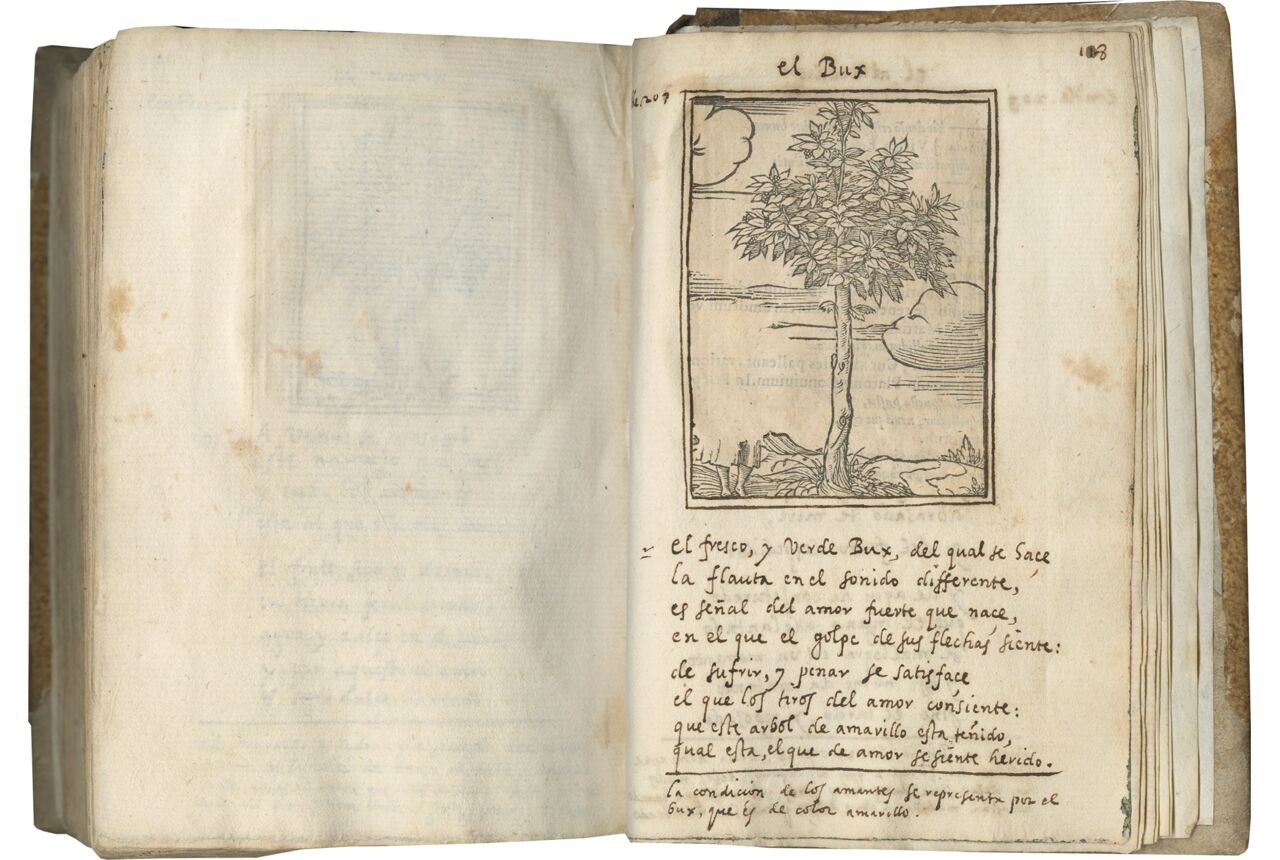 el Bux
108
207
el fresco, y verde Bux, del qual se hace
la flauta en el sonido differente,
es señal del amor fuerte que nace,
en el que el golpe de sus flechas siente:
de sufrir, y penar se satisface
el que los tiros del amor consiente:
que este arbol de amarillo esta teñido,
qual esta, el que de amor se siente herido.
la condición de los amantes se representa por el
bux, que és de color amarillo.